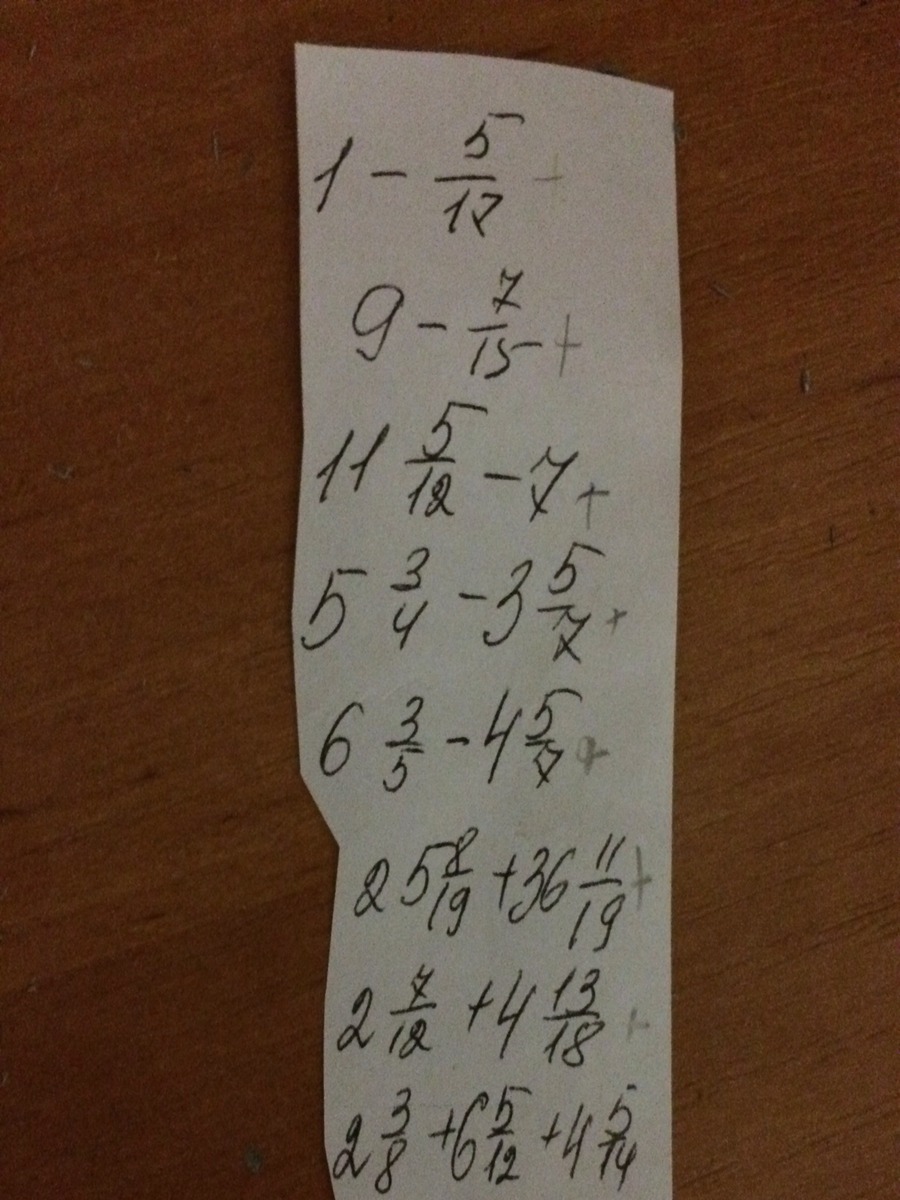 1 - 5/17 +
9 - 7/15 +
11 5/12 - 7 +
5 3/4 - 3 5/7 +
6 3/5 - 4 5/7 +
25 8/19 + 36 11/19 +
2 7/12 + 4 13/18 +
2 3/8 + 6 5/12 + 4 5/14